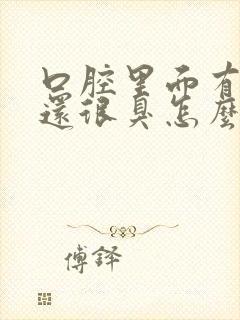 口腔里面有
還很臭怎麼
傅鐸